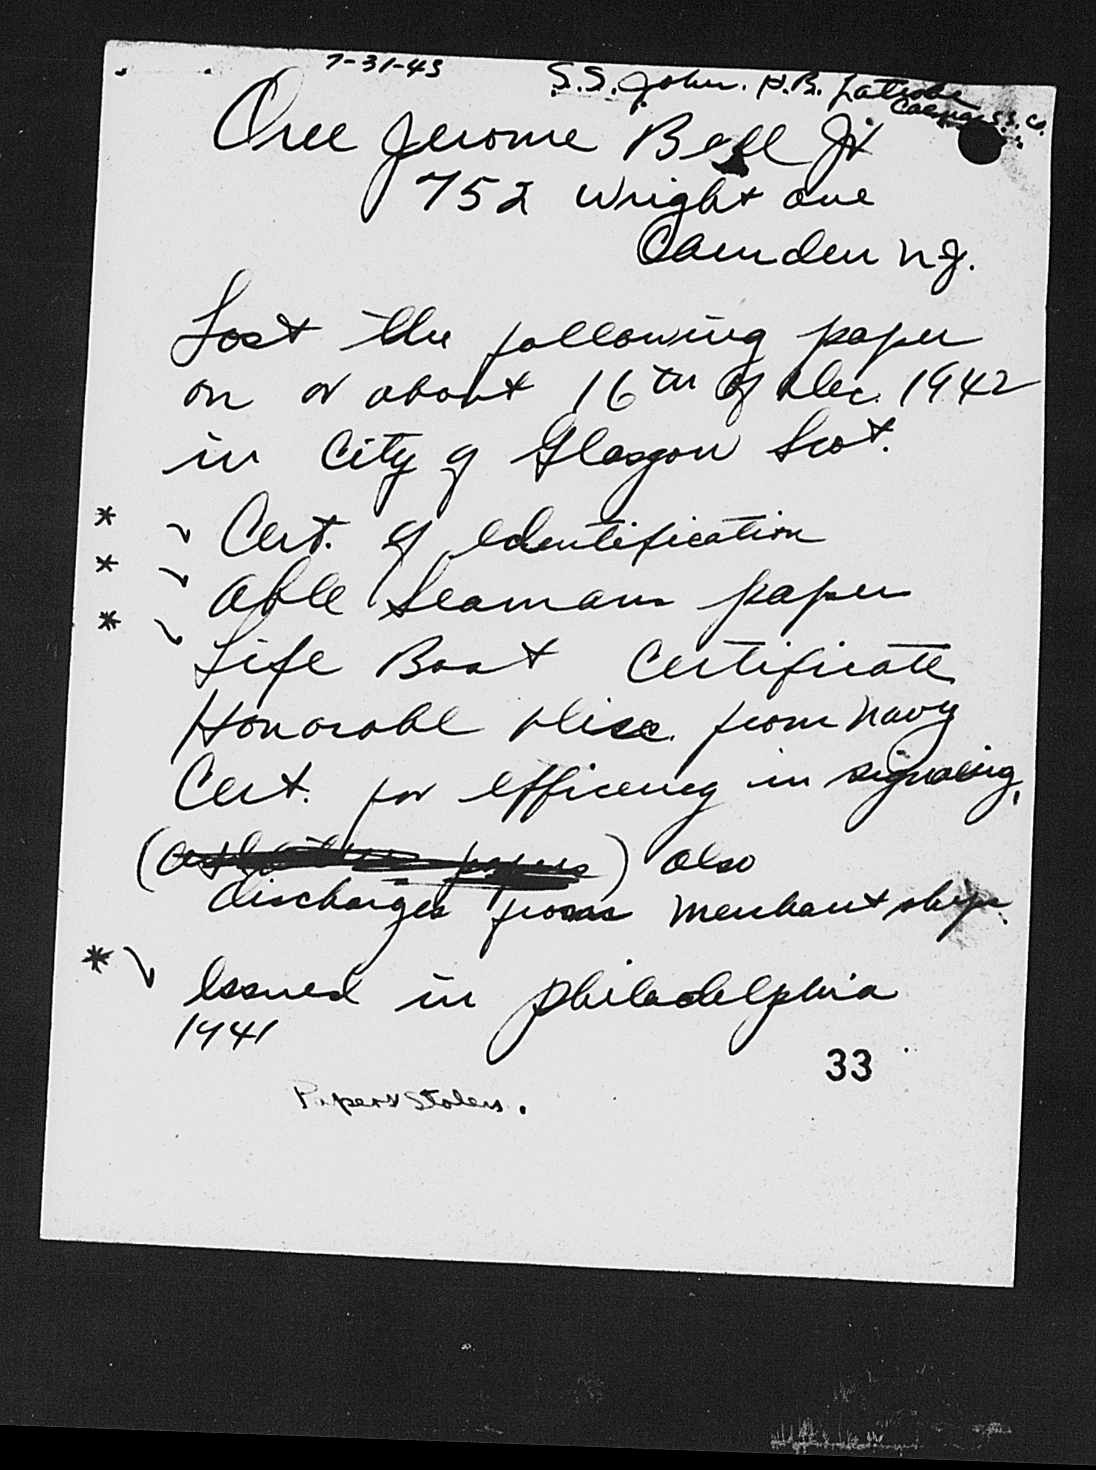 7-31-43
S.S. John. H.B. Latrobe
S.S. Co.
Oree Jerome Bell Jr
752 Wright ave
Camden N.J.
Lost the following paper
on or about 16th of Dec. 1942
in City of Glasgow Scot.
* ✓ Cert. of Identification
* ✓ Able Seamans paper
* ✓ Life Boat Certificate
Honorable Disc. from Navy
Cert. for efficency in signaling,
( papers ) also
discharges from merchant ships.
* ✓ Issued in Philadelphia
1941
33
Papers Stolen.